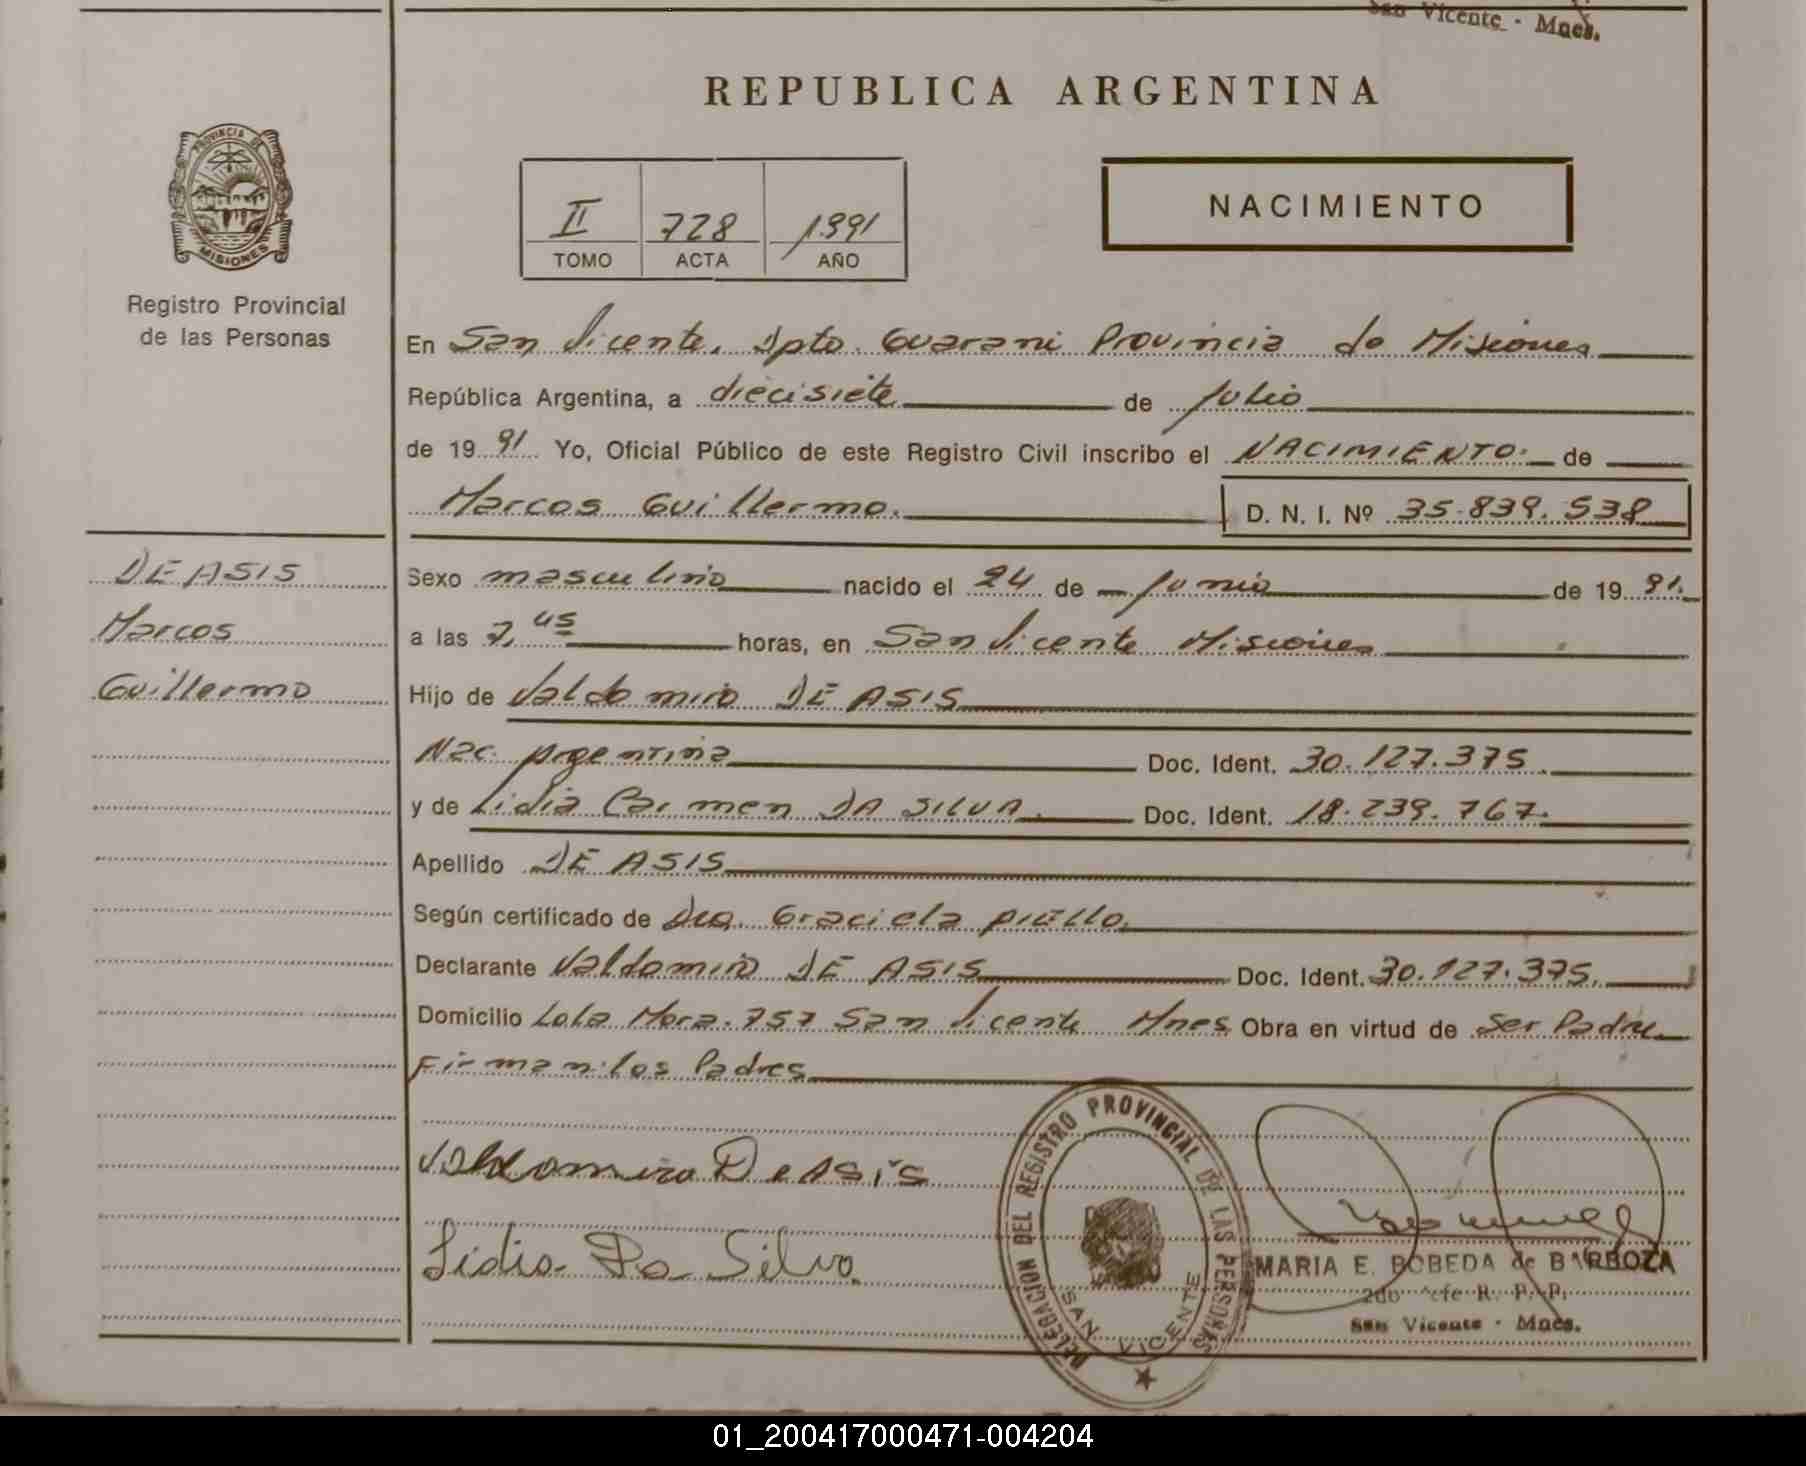 San Vicente - Mnes.
REPUBLICA ARGENTINA
PROVINCIA DE
MISIONES
Registro Provincial
de las Personas
II 728 1991
TOMO ACTA AÑO
NACIMIENTO
En San Vicente, Dpto. Guarani Provincia de Misiones
República Argentina, a diecisiete de Julio
de 19 91 Yo, Oficial Público de este Registro Civil inscribo el NACIMIENTO. de
Marcos Guillermo. D. N. I. Nº 35.839.538
DE ASIS
Marcos
Guillermo
Sexo masculino nacido el 24 de Junio de 19 91.
a las 7,45 horas, en San Vicente Misiones
Hijo de Valdomiro DE ASIS
Nac. Argentina Doc. Ident. 30.127.375.
y de Lidia Carmen DA SILVA. Doc. Ident. 18.239.767.
Apellido DE ASIS
Según certificado de Dra. Graciela
Declarante Valdomiro DE ASIS Doc. Ident. 30.127.375.
Domicilio Lola Mora. 757 San Vicente Mnes Obra en virtud de Ser Padre
Firman los Padres
Valdomiro De Asis
Lidia Da Silva
DELEGACION DEL REGISTRO PROVINCIAL DE LAS PERSONAS
SAN VICENTE
MARIA E. BOBEDA de BARBOZA
2do Jefe R. P. P.
San Vicente - Mnes.
01_200417000471-004204